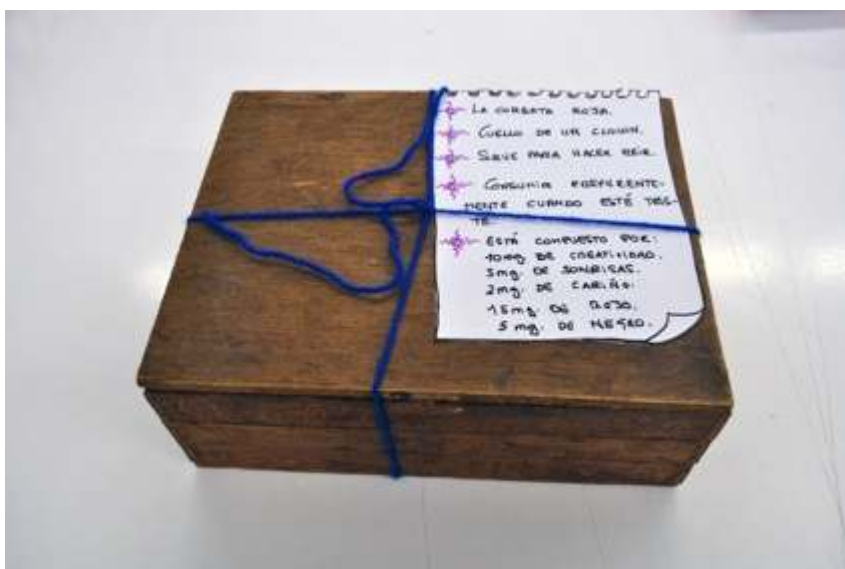 LA CORBATA ROJA.
CUELLO DE UN CLOWN.
SIRVE PARA HACER REIR.
CONSUMIR PREFERENTE-
MENTE CUANDO ESTÉ TRIS-
TE.
ESTÁ COMPUESTO POR:
10mg DE CREATIVIDAD.
3mg. DE SONRISAS.
2mg. DE CARIÑO.
15mg DE ROJO.
5 mg. DE NEGRO.